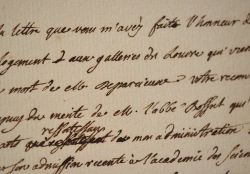 la lettre que vous m'avez faite l'honneur d
logement aux galleries du Louvre qui vien
mort de M. Deparcieux votre recom
puy du merite de M. l'abbé Bossut qui
respectable
de mon administration
son admission recente a l'academie des Scien